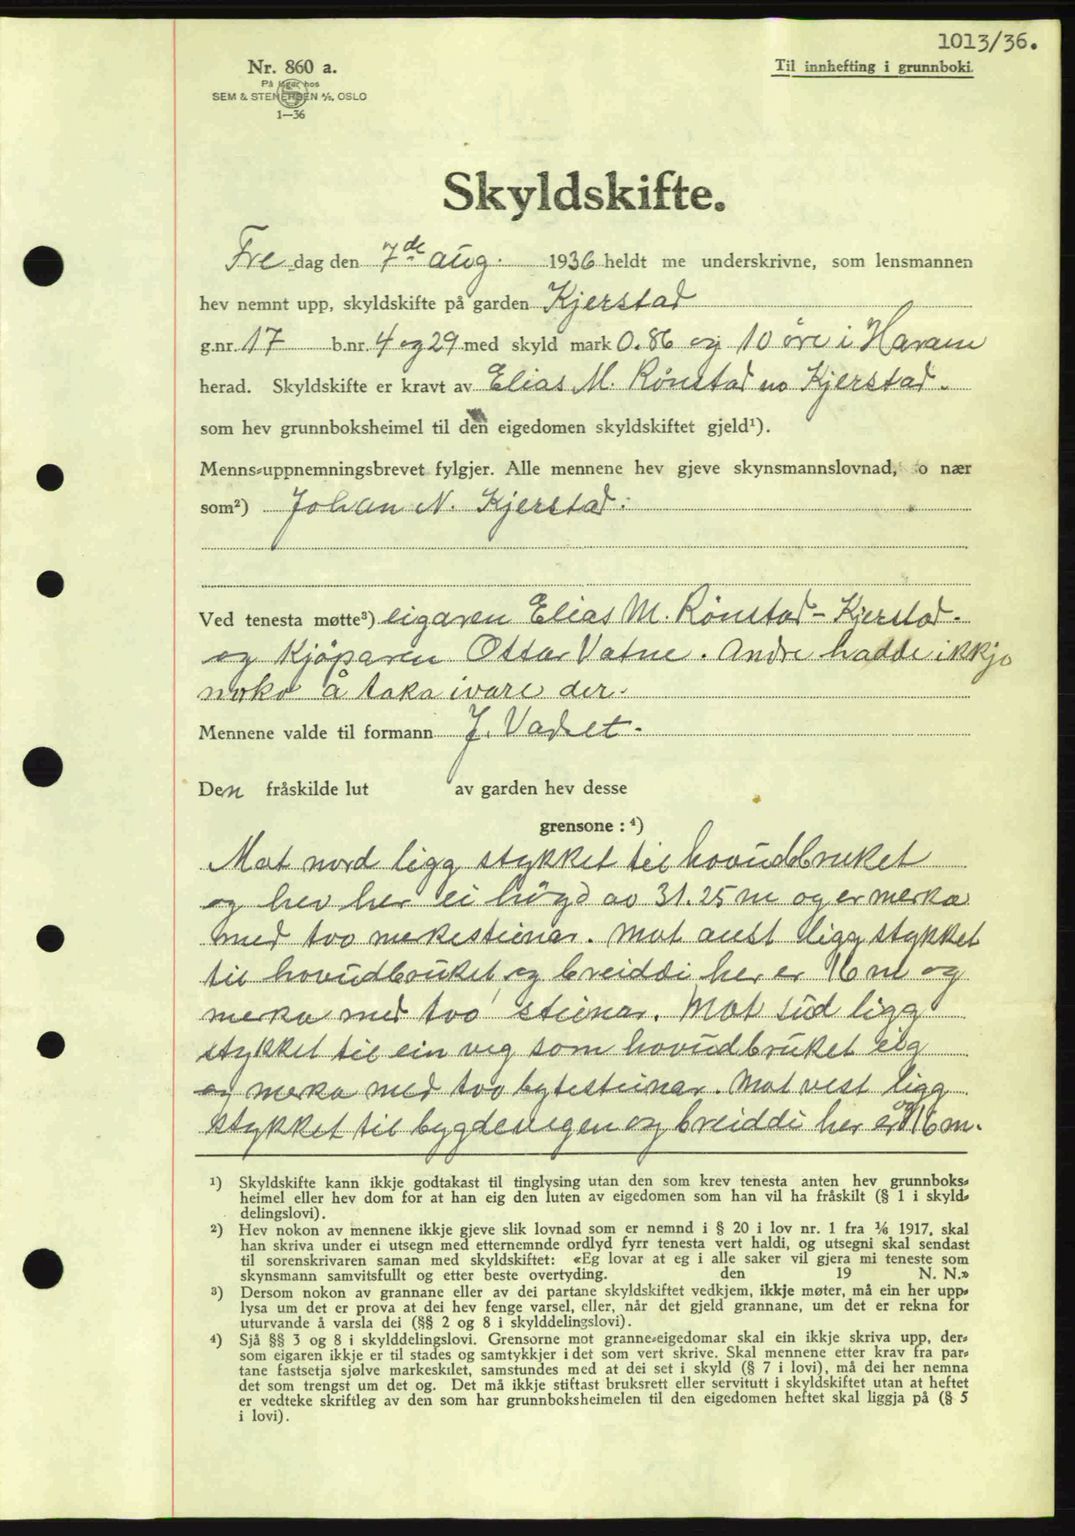 1013/36.
Nr. 860 a.
Til innhefting i grunnboki.
På lager hos
SEM & STENERSEN A/S, OSLO
1—36
Skyldskifte.
Fre dag den 7de aug. 1936 heldt me underskrivne, som lensmannen
hev nemnt upp, skyldskifte på garden Kjerstad
g.nr. 17 b.nr. 4 og 29 med skyld mark 0.86 og 10 öre i Haram
herad. Skyldskifte er kravt av Elias M. Rönstad no Kjerstad.
som hev grunnboksheimel til den eigedomen skyldskiftet gjeld¹).
Menns-uppnemningsbrevet fylgjer. Alle mennene hev gjeve skynsmannslovnad, so nær
som²) Johan N. Kjerstad.
Ved tenesta møtte³) eigaren Elias M. Rönstad-Kjerstad.
og Kjöparen Ottar Vatne. Andre hadde ikkje
noko å taka ivare der.
Mennene valde til formann J. Vadset.
Den fråskilde lut av garden hev desse
grensone : ⁴)
Mot nord ligg stykket til hovudbruket
og hev her ei högd av 31.25 m og er merka
med tvo merkesteinar. Mot aust ligg stykket
til hovudbruket og breiddi her er 16 m og
merka med tvo steinar. Mot süd ligg
stykket til ein veg som hovudbruket eig
og merka med tvo bytesteinar. Mot vest ligg
stykket til bygdevegen og breiddi her er og 16 m.
¹) Skyldskifte kann ikkje godtakast til tinglysing utan den som krev tenesta anten hev grunnboks-
heimel eller hev dom for at han eig den luten av eigedomen som han vil ha fråskilt (§ 1 i skyld-
delingslovi).
²) Hev nokon av mennene ikkje gjeve slik lovnad som er nemnd i § 20 i lov nr. 1 fra 1/6 1917, skal
han skriva under ei utsegn med etternemnde ordlyd fyrr tenesta vert haldi, og utsegni skal sendast
til sorenskrivaren saman med skyldskiftet: «Eg lovar at eg i alle saker vil gjera mi teneste som
skynsmann samvitsfullt og etter beste overtyding. den 19 N. N.»
³) Dersom nokon av grannane eller av dei partane skyldskiftet vedkjem, ikkje møter, må ein her upp-
lysa um det er prova at dei hev fenge varsel, eller, når det gjeld grannane, um det er rekna for
uturvande å varsla dei (§§ 2 og 8 i skylddelingslovi).
⁴) Sjå §§ 3 og 8 i skylddelingslovi. Grensorne mot granne-eigedomar skal ein ikkje skriva upp, der-
som eigaren ikkje er til stades og samtykkjer i det som vert skrive. Skal mennene etter krav fra par-
tane fastsetja sjølve markeskilet, samstundes med at dei set i skyld (§ 7 i lovi), må dei her nemna
det som trengst um det og. Det må ikkje stiftast bruksrett eller servitutt i skyldskiftet utan at heftet
er vedteke skriftleg av den som har grunnboksheimelen til den eigedomen heftet skal liggja på (§ 5
i lovi).